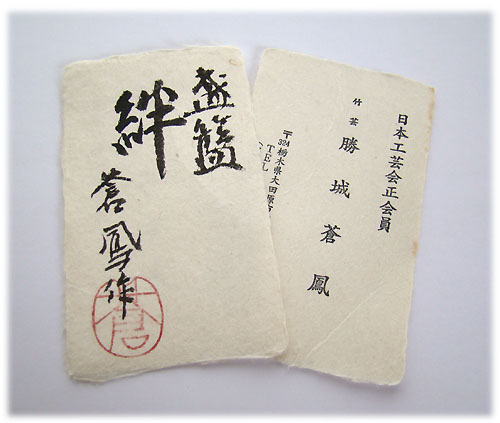 盛籃
絆
蒼鳳作
蒼
日本工芸会正会員
竹芸 勝城蒼鳳
〒324 栃木県大田原市
TEL